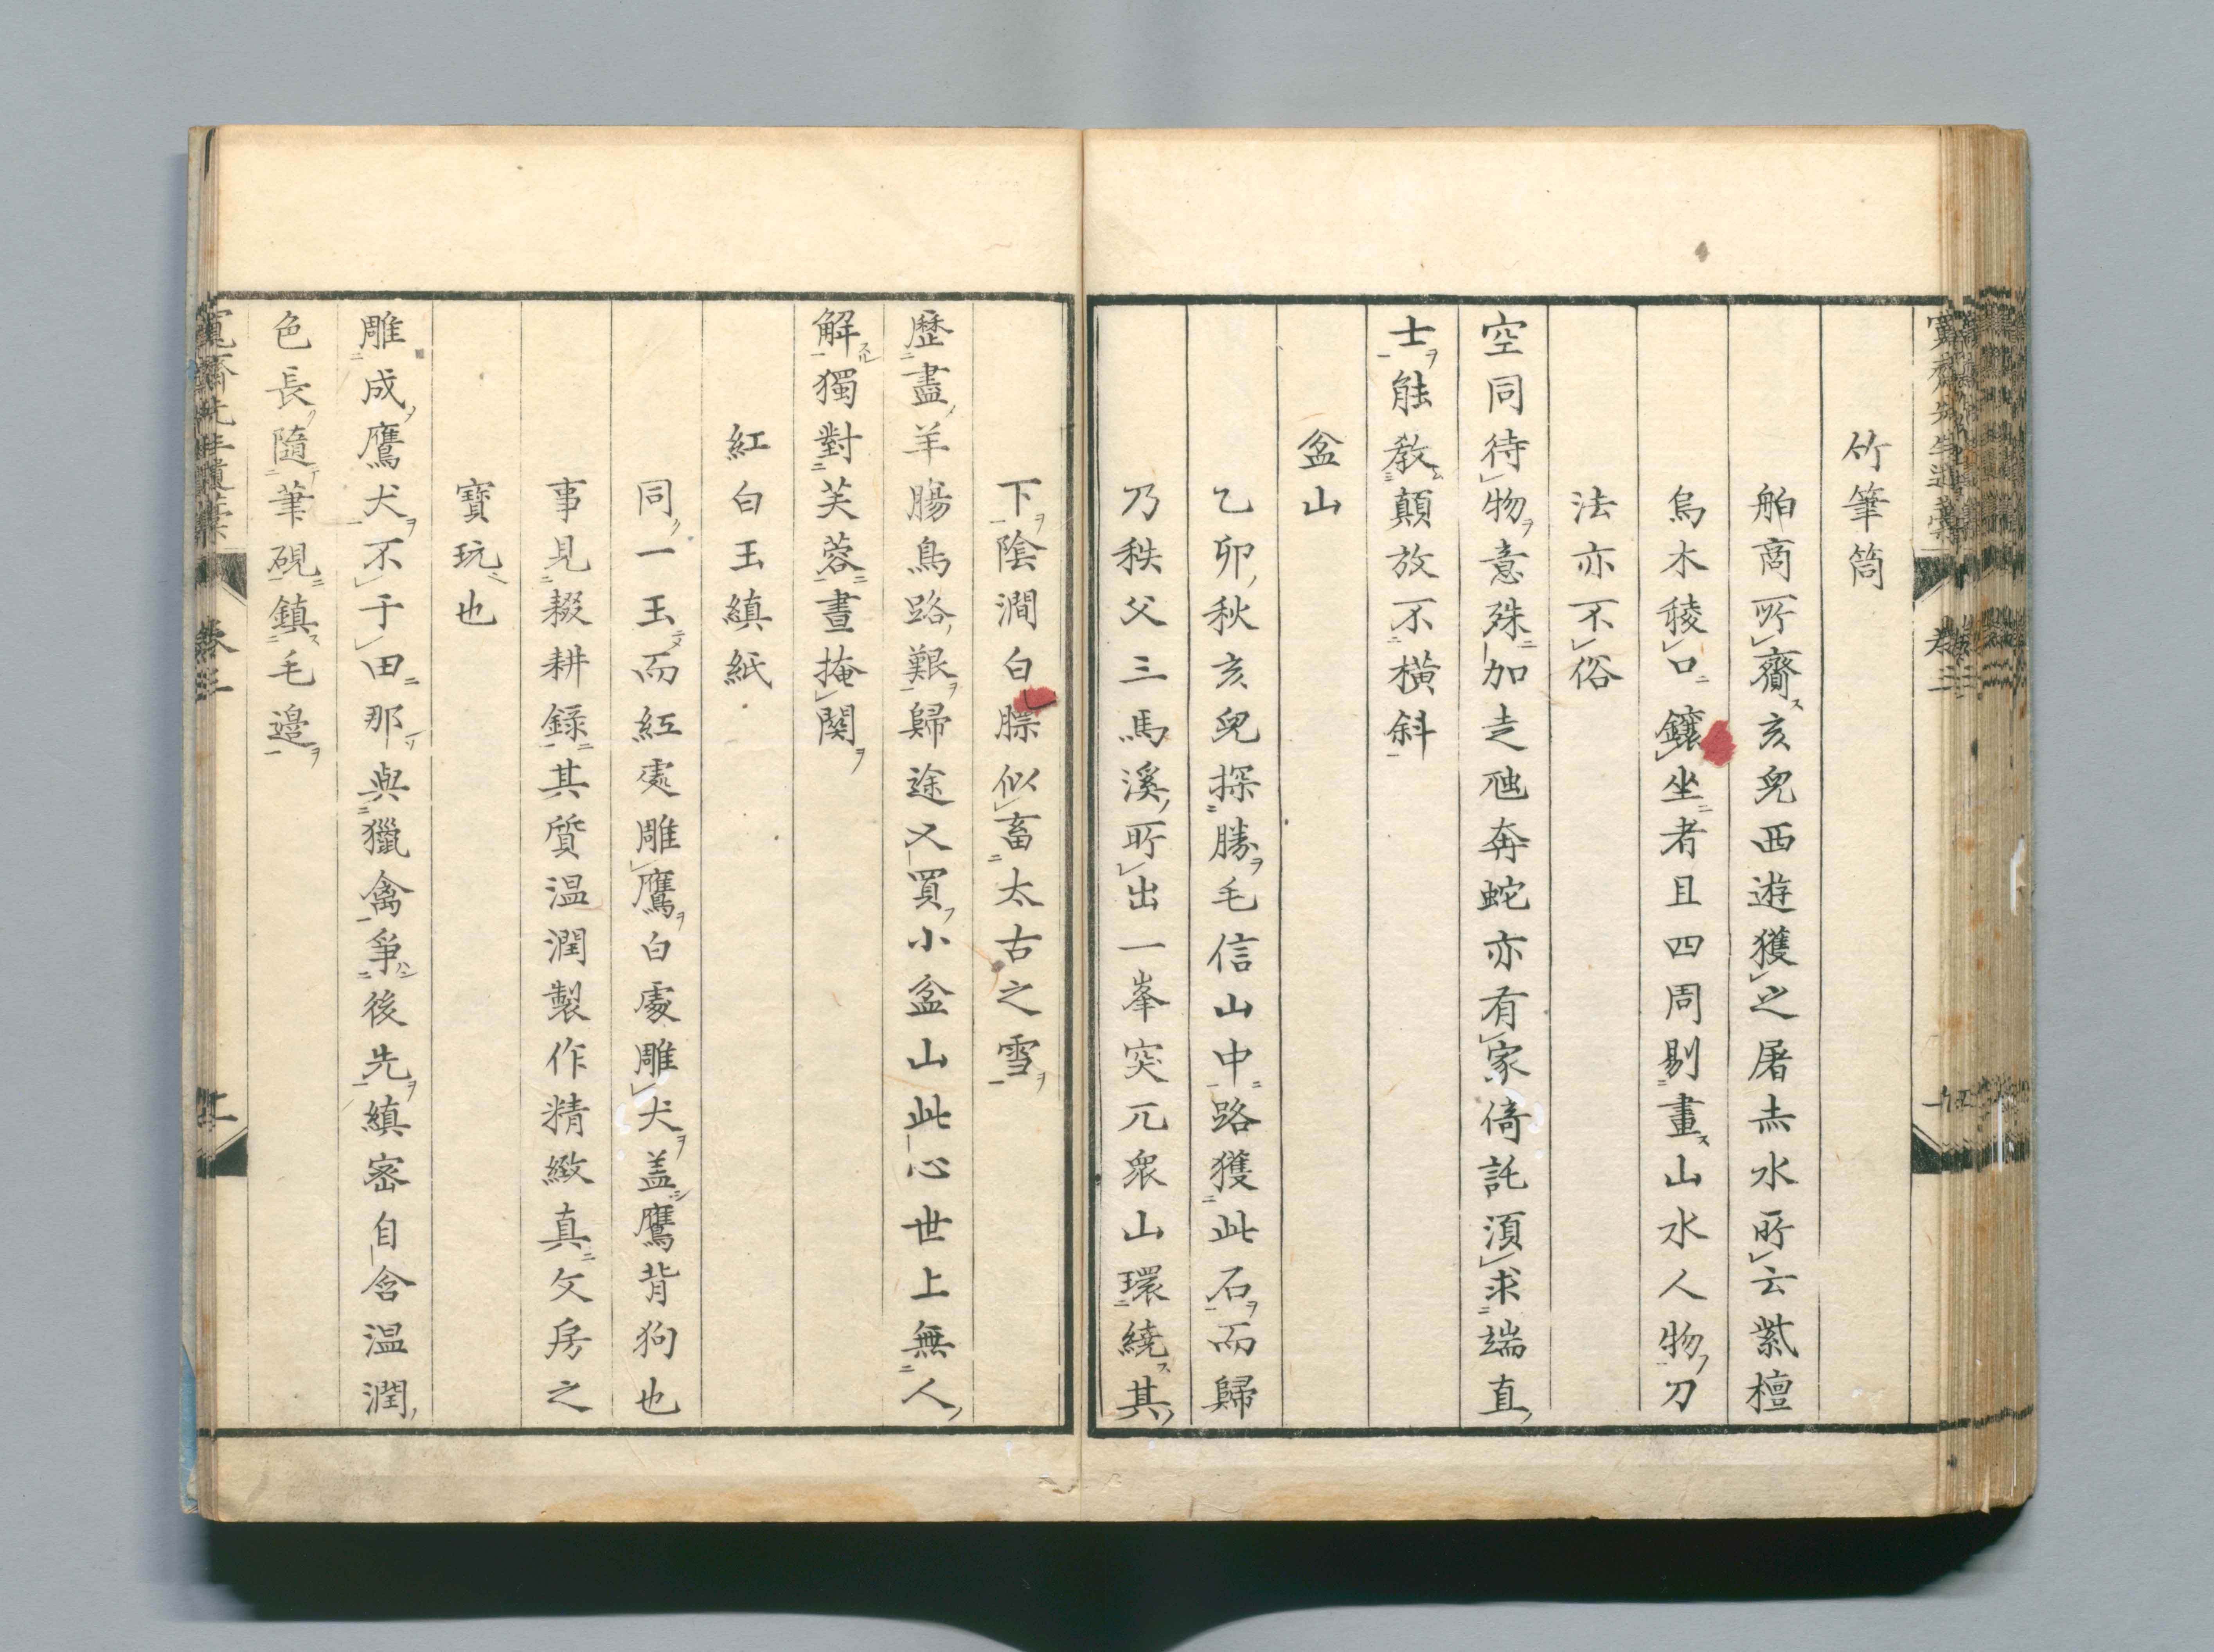 竹筆筒
舶商所齎亥兒西遊獲之屠赤水所云紫檀
烏木稜口鑲坐者且四周剔畫山水人物刀
法亦不俗
空同待物意殊加走虺奔蛇亦有家倚託須求端直
士能教顛放不橫斜
盆山
乙卯秋亥兒探勝毛信山中路獲此石而歸
乃秩父三馬溪所出一峯突兀衆山環繞其
下陰澗白臕似畜太古之雪
歷盡羊腸鳥路艱歸途又買小盆山此心世上無人
解獨對芙蓉晝掩關
紅白玉縝紙
同一玉而紅處雕鷹白處雕犬盖鷹背狗也
事見輟耕錄其質温潤製作精緻真文房之
寶玩也
雕成鷹犬不于田那與獵禽爭後先縝密自含温潤
色長隨筆硯鎮毛邊
卷三